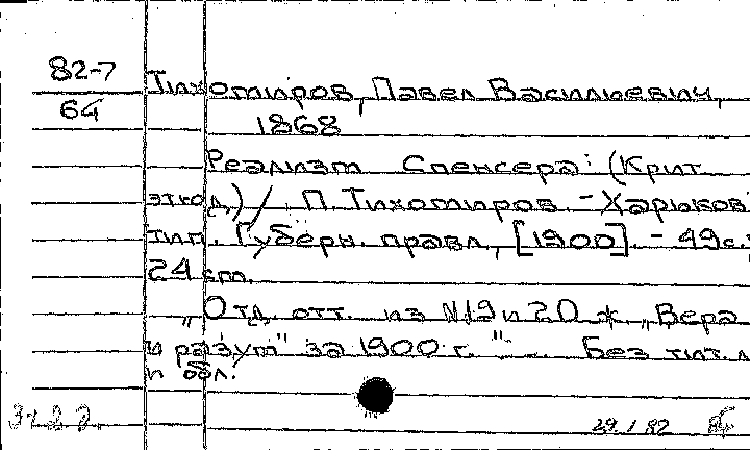 82-7
64
Тихомиров, Павел Васильевич,
1868
Реализм Спенсера: (Крит.
этюд) / П. Тихомиров. - Харьков:
тип. Губерн. правл., [1900]. - 49 с.;
24 см.
„Отд. отт. из №19 и 20 ж. „Вера
и разум" за 1900 г.". — Без тит. л.
и обл.
29.1 82